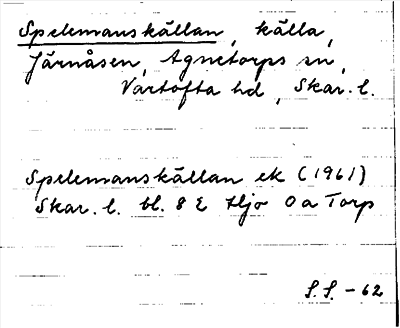 Spelemanskällan, källa,
Järnåsen, Agnetorps sn,
Vartofta hd, Skar. l.
Spelemanskällan ek (1961)
Skar. l. bl. 8 E Hjo 0 a Torp
S.S. -62